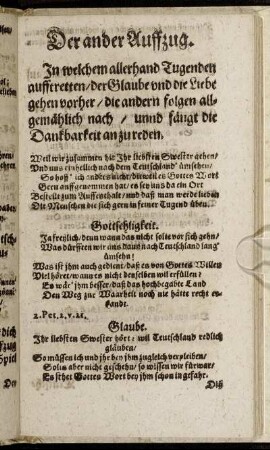 Der ander Auffzug.
In welchem allerhand Tugenden
aufftretten/der Glaube vnd die Liebe
gehen vorher/die andern folgen all-
gemählich nach/ vnnd fängt die
Danckbarkeit an zu reden.
Weil wir zusammen hie Ihr liebsten Swester gehen/
Und uns einhelich nach dem Teutschland' ümsehen/
So hoff' ich anders nicht/dieweil es Gottes Wort
Gern auffgenommen hat/es sey uns da ein Ort
Bestelt zum Auffenthalt/und daß man werde lieben
Die Menschen die sich gern in seiner Tugend üben.
Gottseligkeit.
Ja freylich/denn wann das nicht solte vor sich gehn/
Was dürfften wir uns dann nach Teutschland lang'
ümsehn!
Was ist ihm auch gedient/daß es von Gottes Willen
Viel höret/wann es nicht denselben wil erfüllen?
Es wär' jhm besser/daß das hochbegabte Land
Den Weg zur Waarheit noch nie hätte recht er-
kandt.
2. Pet. 2. v. 21.
Glaube.
Ihr liebsten Swester hört: wil Teutschland redlich
gläuben/
So müssen ich und jhr bey jhm zugleich verpleiben/
Sol es aber nicht geschehn/ so wissen wir fürwar/
Es stehet Gottes Wort bey jhm schon in gefahr.
Diß